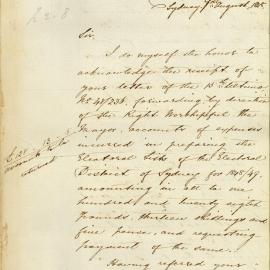 Sydney 7th August, 185
Sir.
I do myself the honor to
acknowledge the receipt of
your letter of the 15th
No 41/236, forwarding by direction
of the Right Worshipful the
Mayor, accounts of expenses
incurred in preparing the
Electoral Lists of the Electoral
District of Sydney for 1848/49.
amounting in all to one
hundred and twenty eight
pounds, thirteen shillings and
five pence, and requesting
payment of the same.
Having referred your